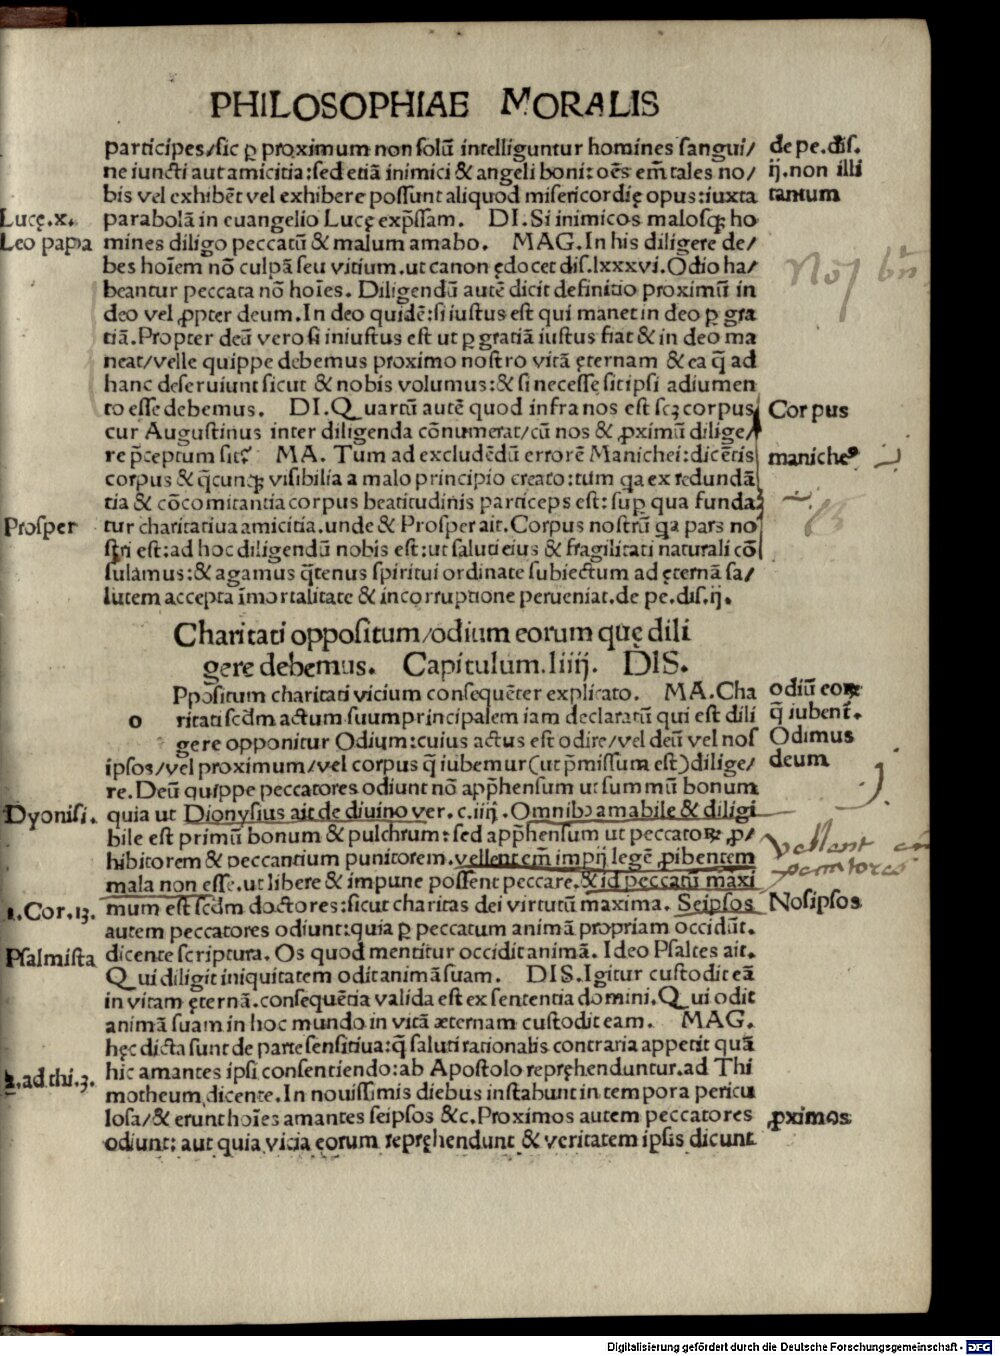 PHILOSOPHIAE MORALIS
participes/sic ꝑ proximum non solū intelliguntur homines sangui/
ne iuncti aut amicitia:sed etiā inimici & angeli boni: oēs em̄ tales no/
bis vel exhibēt vel exhibere possunt aliquod misericordię opus:iuxta
parabolā in euangelio Lucę exp̄ssam. DI. Si inimicos malosqꝫ ho
mines diligo peccatū & malum amabo. MAG. In his diligere de/
bes hoīem nō culpā seu vitium. ut canon ędocet dis. lxxxvi. Odio ha/
beantur peccata nō hoīes. Diligendū autē dicit definitio proximū in
deo vel ꝓpter deum. In deo quidē: si iustus est qui manet in deo ꝑ gra
tiā. Propter deū vero si iniustus est ut ꝑ gratiā iustus fiat & in deo ma
neat/velle quippe debemus proximo nostro vitā ęternam & ea q̄ ad
hanc deseruiunt sicut & nobis volumus: & si necesse sit ipsi adiumen
to esse debemus. DI. Quartū autē quod infra nos est scꝫ corpus
cur Augustinus inter diligenda cōnumerat/cū nos & ꝓximū dilige/
re p̄ceptum sit? MA. Tum ad excludēdū errorē Manichei: dicētis
corpus & q̄cunqꝫ visibilia a malo principio creato: tum qa ex redundā
tia & cōcomitantia corpus beatitudinis particeps est: sup qua funda
tur charitatiua amicitia. unde & Prosper ait. Corpus nostrū qa pars no
stri est: ad hoc diligendū nobis est: ut saluti eius & fragilitati naturali cō
sulamus: & agamus q̄tenus spiritui ordinate subiectum ad ęternā sa/
lutem accepta īmortalitate & incorruptione perueniat. de pe. dis. ij.
Charitati oppositum/odium eorum quę dili
gere debemus. Capitulum. liiij. DIS.
o Ppositum charitati vicium consequēter explicato. MA. Cha
ritati scdm actum suum principalem iam declaratū qui est dili
gere opponitur Odium: cuius actus est odire/vel deū vel nos
ipsos/vel proximum/vel corpus q̄ iubemur (ut p̄missum est) dilige/
re. Deū quippe peccatores odiunt nō app̄hensum ut summū bonum
quia ut Dionysius ait de diuino ver. c. iiij. Omnibꝫ amabile & diligi
bile est primū bonum & pulchrum: sed app̄hensum ut peccatoꝝ ꝓ/
hibitorem & peccantium punitorem. vellent em̄ impij legē ꝓibentem
mala non esse. ut libere & impune possent peccare. & id peccatū maxi
mum est scdm doctores: sicut charitas dei virtutū maxima. Seipsos
autem peccatores odiunt: quia ꝑ peccatum animā propriam occidūt.
dicente scriptura. Os quod mentitur occidit animā. Ideo Psaltes ait.
Qui diligit iniquitatem odit animā suam. DIS. Igitur custodit eā
in vitam ęternā. consequētia valida est ex sententia domini. Qui odit
animā suam in hoc mundo in vitā æternam custodit eam. MAG.
hęc dicta sunt de parte sensitiua: q̄ saluti rationalis contraria appetit quā
hic amantes ipsi consentiendo: ab Apostolo repręhenduntur. ad Thi
motheum dicente. In nouissimis diebus instabunt in tempora pericu
losa/& erunt hoīes amantes seipsos &c. Proximos autem peccatores
odiunt: aut quia vicia eorum repręhendunt & veritatem ipsis dicunt
Lucę. x.
Leo papa
Prosper
Dyonisi.
1. Cor. 13.
Psalmista
2. ad thi. 3.
de pe. dis.
ij. non illi
tantum
Corpus
manicheꝰ
odiū eoꝝ
q̄ iubent̄.
Odimus
deum
vellent
peccatores
Nosipsos
ꝓximos
Digitalisierung gefördert durch die Deutsche Forschungsgemeinschaft - DFG